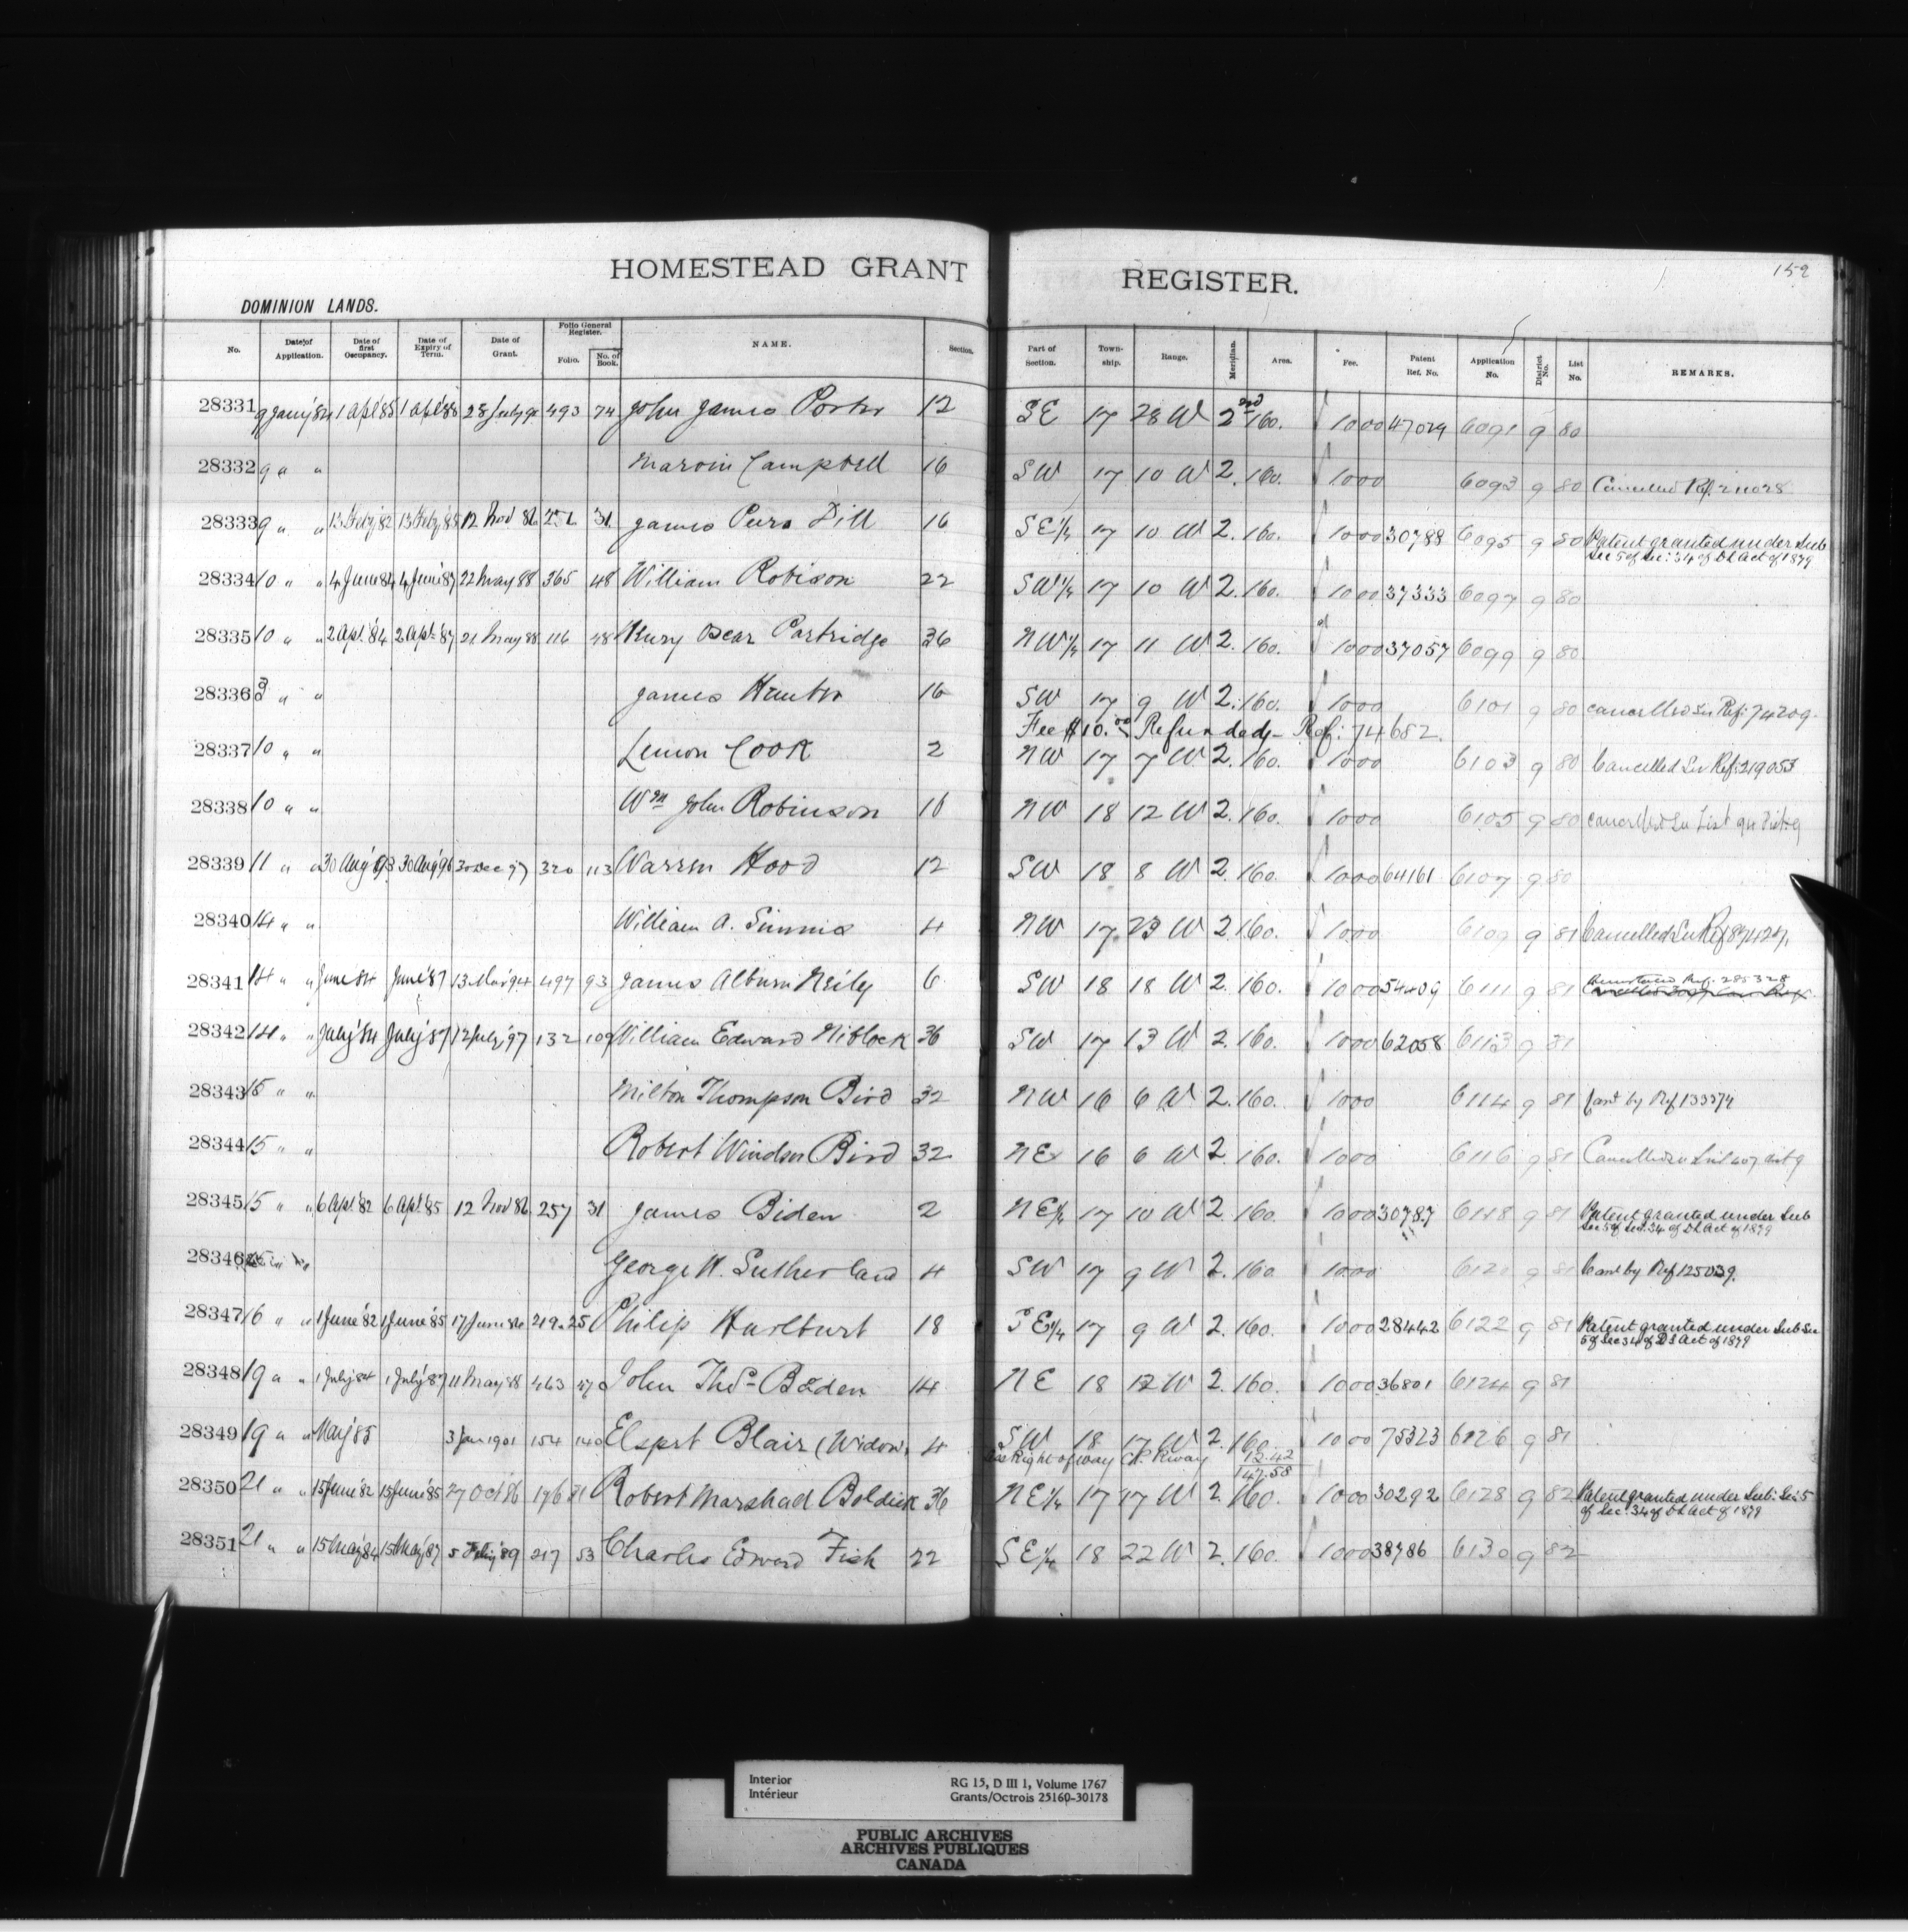 HOMESTEAD GRANT REGISTER. 152
DOMINION LANDS.
No. Date of Application. Date of first Occupancy. Date of Expiry of Term. Date of Grant. Folio General Register. Folio. No. of Book. NAME. Section. Part of Section. Town-ship. Range. Meridian. Area. Fee. Patent Ref. No. Application No. District No. List No. REMARKS.
28331 9 Jany '84 1 Apl '85 1 Apl '88 28 July 493 74 John James Porter 12 SE 17 28 W 2nd 160. 1000 47029 6091 9 80
28332 9 " " Marvin Campbell 16 SW 17 10 W 2. 160. 1000 6093 9 80 Cancelled Ref. 211028
28333 9 " " 13 Feby '82 13 Feby '85 12 Nov 86 31 James Dill 16 SE¼ 17 10 W 2. 160. 1000 30788 6095 9 80 Patent granted under Sub
Sec 5 of Sec: 34 of DL Act of 1879
28334 10 " " 4 June 84 4 June '87 22 May 88 365 48 William Robison 22 SW¼ 17 10 W 2. 160. 1000 37333 6097 9 80
28335 10 " " 2 Apl. '84 2 Apl. '87 21 May 88 116 48 Henry Oscar Partridge 36 NW¼ 17 11 W 2. 160. 1000 37057 6099 9 80
28336 " " James Hunter 16 SW 17 9 W 2. 160. 1000 6101 9 80 Cancelled See Ref: 74209
Fee $10.00 Refunded - Ref: 74682.
28337 10 " " Lemon Cook 2 NW 17 7 W 2. 160. 1000 6103 9 80 Cancelled See Ref: 219053
28338 10 " " Wm John Robinson 16 NW 18 12 W 2. 160. 1000 6105 9 80 Cancelled See List 94 Dist. 9
28339 11 " " 30 Aug '93 30 Aug '96 30 Dec 97 320 113 Warren Hood 12 SW 18 8 W 2. 160. 1000 64161 6107 9 80
28340 14 " " William A. Simms 4 NW 17 23 W 2. 160. 1000 6109 9 81 Cancelled See Ref
28341 14 " " June 84 June '87 13 Mar 94 497 93 James Alburn Neily 6 SW 18 18 W 2. 160. 1000 54409 6111 9 81 Reinstated Ref. 285328
28342 14 " " July '84 July '87 12 July '97 132 109 William Edward Niblock 36 SW 17 13 W 2. 160. 1000 62058 6113 9 81
28343 15 " " Milton Thompson Bird 32 NW 16 6 W 2. 160. 1000 6114 9 81 Cant by Ref 133374
28344 15 " " Robert Winden Bird 32 NE 16 6 W 2 160. 1000 6116 9 81 Cancelled List 407 dist 9
28345 15 " " 6 Apl. '82 6 Apl. '85 12 Nov 86 257 31 James Biden 2 NE¼ 17 10 W 2 160. 1000 30787 6118 9 81 Patent granted under Sub
Sec 5 of Sec. 34 of DL Act of 1879
28346 George H. Sutherland 4 SW 17 9 W 2. 160 1000 6120 9 81 Cant by Ref 125039.
28347 16 " " 1 June '82 1 June '85 17 June 86 219 25 Philip Hurlburt 18 SE¼ 17 9 W 2. 160. 1000 28442 6122 9 81 Patent granted under Sub Sec
5 of Sec 34 of DL Act of 1879
28348 19 " " 1 July 84 1 July '87 11 May 88 463 47 John Thos Baden 14 NE 18 12 W 2. 160. 1000 36801 6124 9 81
28349 19 " " May '85 3 Jan 1901 154 140 Elspet Blair (Widow) 4 SW 18 17 W 2. 160. 1000 75323 6126 9 81
Less Right of way C.P. Rway 12.42
147.58
28350 21 " " 15 June '82 15 June '85 27 Oct 86 176 31 Robert Marshall Boldick 36 NE¼ 17 17 W 2 160. 1000 30292 6128 9 82 Patent granted under Sub: Sec 5
of Sec. 34 of DL Act of 1879
28351 21 " " 15 May '84 15 May '87 5 Feby '89 217 53 Charles Edward Fish 22 SE¼ 18 22 W 2. 160. 1000 38786 6130 9 82
Interior RG 15, D III 1, Volume 1767
Intérieur Grants/Octrois 25160-30178
PUBLIC ARCHIVES
ARCHIVES PUBLIQUES
CANADA